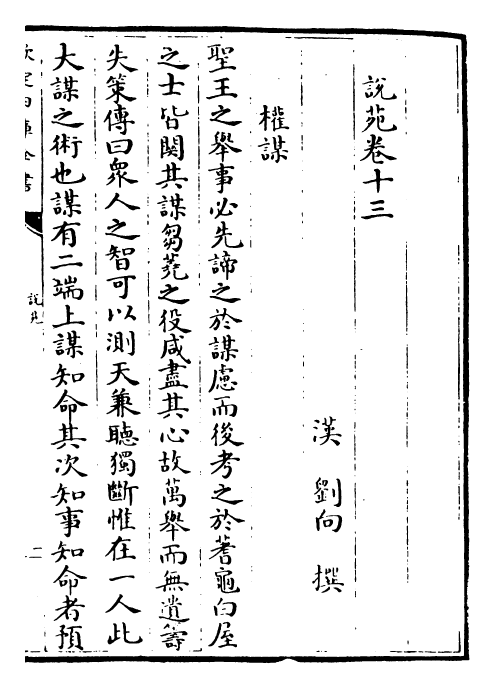 說苑卷十三
漢 劉向 撰
權謀
聖王之舉事必先諦之於謀慮而後考之於蓍龜白屋
之士皆闗其謀芻蕘之役咸盡其心故萬舉而無遺籌
失策傳曰衆人之智可以測天兼聽獨斷惟在一人此
大謀之術也謀有二端上謀知命其次知事知命者預
欽定四庫全書
說苑